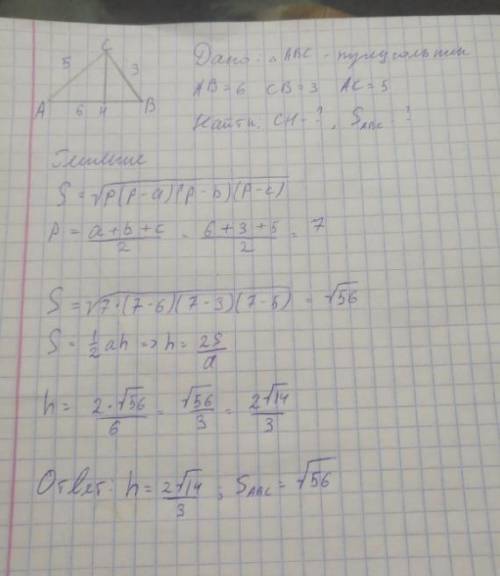 C
5 3
A 6 H B
Дано: △ABC -
AB = 6 CB = 3 AC = 5
Найти: CH - ?, S_ABC - ?
Решение
S = √p(p-a)(p-b)(p-c)
P = a+b+c/2 = 6+3+5/2 = 7
S = √7·(7-6)(7-3)(7-5) = √56
S = 1/2 ah => h = 2S/a
h = 2·√56/6 = √56/3 = 2√14/3
Ответ: h = 2√14/3 ; S_ABC = √56